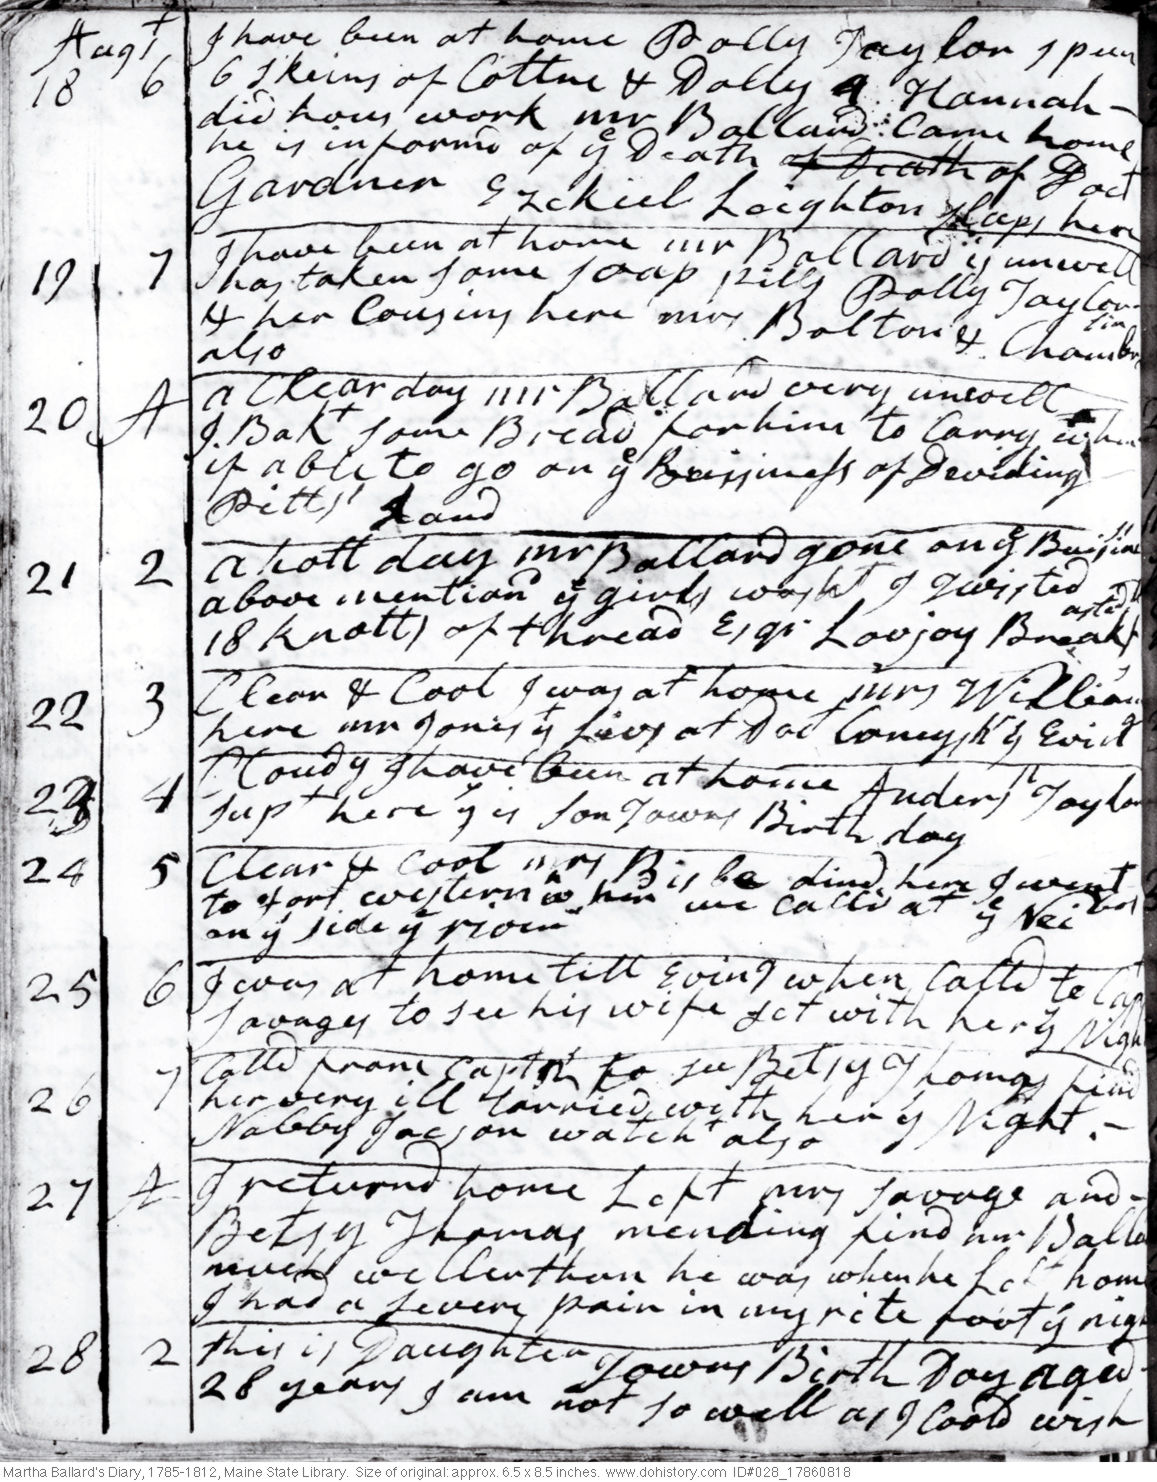 Augt
18 6 I have been at home Polly Taylor spun
6 skeins of Cottne & Dolly & Hannah -
did hous work mr Ballard Came home
he is informd of ye Death of Death of Doct
Gardner Ezekiel Leighton sleaps here
19 7 I have been at home mr Ballard is unwell
has taken some soap pills Polly Taylor
& her Cousins here mrs Bolton & Chamber
lin
also
20 A a Clear day mr Ballard very unwell
I Bakt some Bread for him to Carry with him
if able to go on ye Buissiness of Deviding
Pitts' Land
21 2 a hott day mr Ballard gone on ye Buisine
ss
above mentiond ye girls washt I Twisted
18 knotts of thread Esqr Lovjoy Breakf
asted
22 3 Clear & Cool I was at home mrs William
here mr Jones yt livs at Doct Conys hr ys Evng
23 4 Cloudy I have been at home Anders n Taylor
supt here ys is son Towns Birth day
24 5 Clear & Cool mrs Bisbe dind here I went
to Fort western wh her we calld at ye Nei
bors
on ys side ye river
25 6 I was at home till Evng when Calld to Cap
Savages to see his wife set with her ys Night
26 7 Calld from Captn to see Betsy Thomas find
her very ill Tarried with her ys Night. -
Nabby Jacson watcht also
27 A I returnd home Left mrs Savage and -
Betsy Thomas mending find mr Balla
much weller than he was when he Left home
I had a severe pain in my rite foot ys nigh
28 2 this is Daughter Towns Birth Day aged
28 years I am not so well as I Coold wish
Martha Ballard's Diary, 1785-1812, Maine State Library. Size of original: approx. 6.5 x 8.5 inches. www.dohistory.com ID#028_17860818